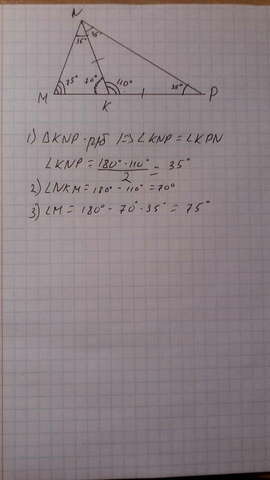 N
35° 35°
75° 70° 110° 35°
M K P
1) ΔKNP - р/б |⇒ ∠KNP = ∠KPN
∠KNP = 180° - 110° / 2 = 35°
2) ∠NKM = 180° - 110° = 70°
3) ∠M = 180° - 70° - 35° = 75°